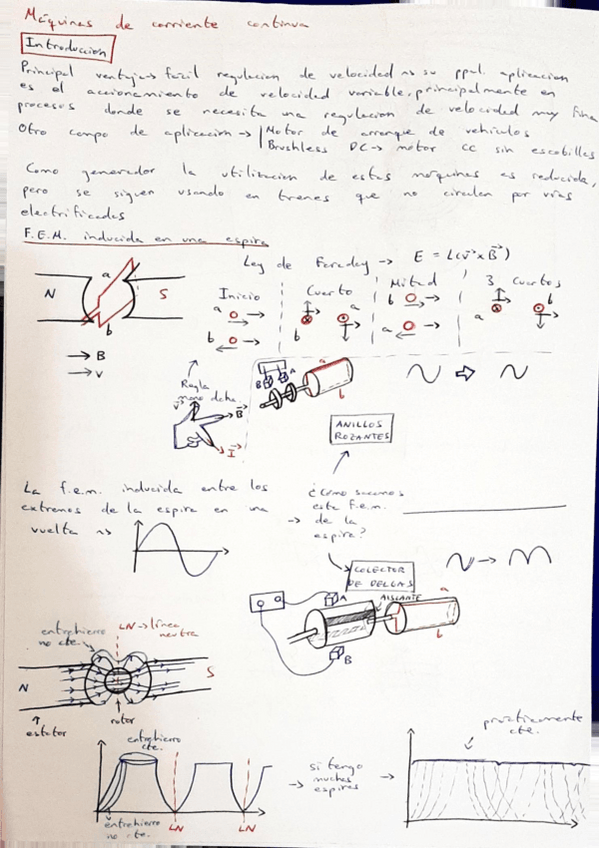 Máquinas de corriente continua
Introduccion
Principal ventaja → fácil regulacion de velocidad → su ppal. aplicacion
es el accionamiento de velocidad variable, principalmente en
procesos donde se necesita una regulacion de velocidad muy fina
Otro campo de aplicacion → Motor de arranque de vehículos
Brushless DC → motor CC sin escobillas
Como generador la utilizacion de estas máquinas es reducida,
pero se siguen usando en trenes que no circulan por vías
electrificadas
F.E.M. inducida en una espira
Ley de Faraday → E = L(v⃗ x B⃗)
N a S b
→ B
→ v
Inicio Cuarto Mitad 3 Cuartos
a b b a
b a a b
Regla
mano dcha.
v⃗ B⃗ I⃗
B A a b
ANILLOS
ROZANTES
La f.e.m. inducida entre los
extremos de la espira en una
vuelta →
→ ¿Como sacamos
esta f.e.m.
de la
espira?
COLECTOR
DE DELGAS
A AISLANTE a
B b
entrehierro
no cte.
LN → línea
neutra
N S
estator rotor
entrehierro
cte.
entrehierro
no cte.
LN LN
→ si tengo
muchas
espiras →
prácticamente
cte.